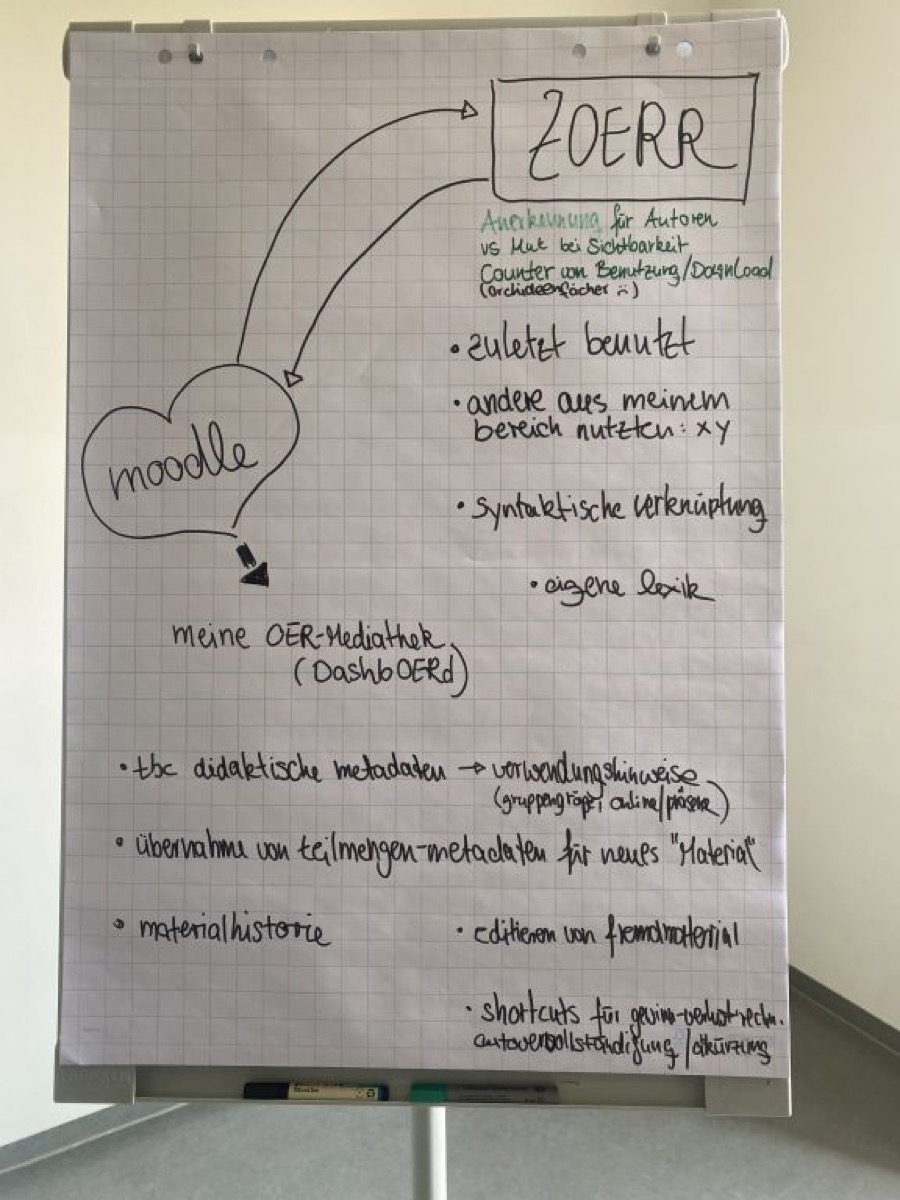 ZOERR
Anerkennung für Autoren
vs Mut bei Sichtbarkeit
Counter von Benutzung/Download
(orchideenfächer :-)
• zuletzt benutzt
• andere aus meinem
bereich nutzten: xy
moodle
• syntaktische verknüpfung
• eigene lexik
meine OER-Mediathek
(DashbOERd)
• tbc didaktische metadaten → verwendungshinweise
(gruppengröße, online/präsenz)
• übernahme von teilmengen-metadaten für neues "Material"
• materialhistorie
• editieren von fremdmaterial
• shortcuts für
autovervollständigung /abkürzung